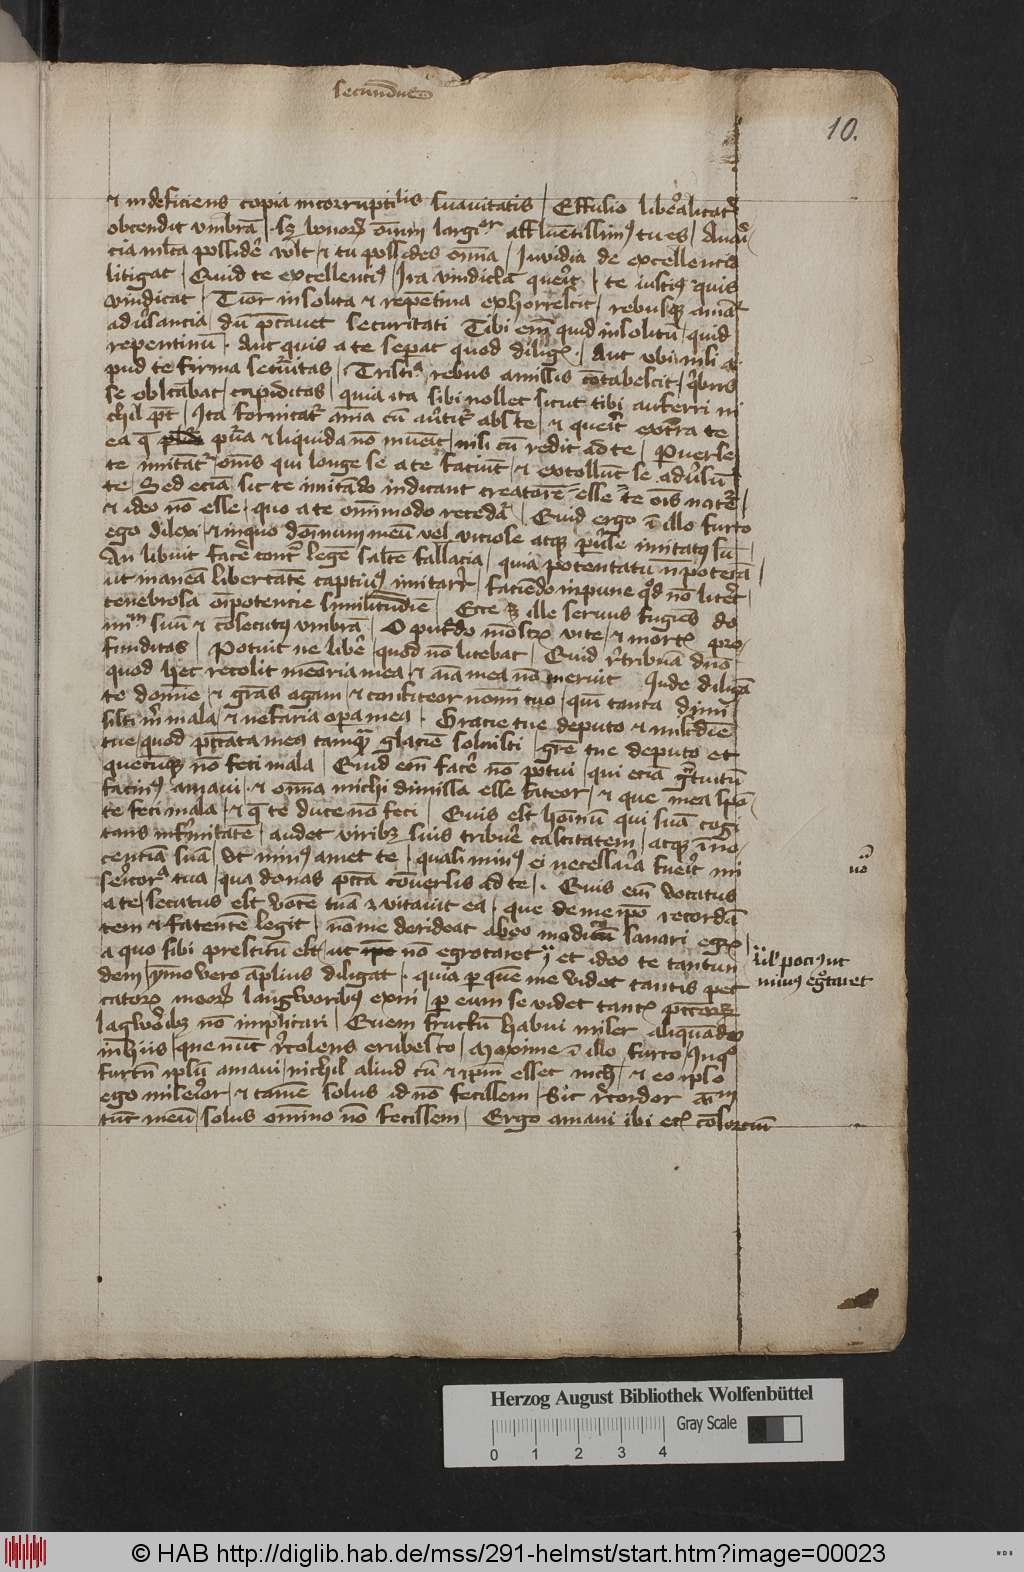 secundus
10.
et indeficiens copia incorruptibilis suavitatis / Effusio liberalitatis
obtendit umbrā / sꝫ bonorꝝ oīm largior affluentissimꝰ tu es / Avari
cia mĺta possidē wlt / et tu possides omnia / Invidia de excellencia
litigat / Quid te excellenciꝰ / Ira vindictā querit / te iustiꝰ quis
vindicat / Timor insolita et repentina exhorrescit / rebusqꝫ amat
adusancia / dū p̄cavet securitati Tibi em̄ quid insolitū / quid
repentinū . Aut quis a te separat quod diligis . / Aut ubi nisi a
pud te firma securitas / Tristicia rebus amissis cōtabescit / quibus
se oblectabat / cupiditas / quia ita sibi nollet sicut tibi auferri ni
chil pōt / Ita fornicatur aīa cū avertitur abs te / et querit extra te
ea q̄ pura et liquida nō invenit / nisi cū redit ad te / Perverse
te imitātur om̄s qui longe se a te faciūt / et extollūt se adversū
te / Sed eciā sic te imitādo indicant creatorē esse te om̄is nature /
et ideo nō esse / quo a te om̄imodo recedatur / Quid ergo ī illo furto
ego dilexi / et in quo dominum meū vel viciose atqꝫ perverse imitatus su
An libuit facere contra legē saltē fallacia / quia potentatu n̄ poterā /
ut mancā libertatē captivus imitarer / faciēdo inpune quod nō liceret
tenebrosa om̄ipotencie similitudīē / Ecce ille servus fugiens do
minum suū et cōsecutus umbrā / O putredo mōstrū vite / et mortis pro
funditas / Potuit ne libere / quod nō licebat / Quid retribuā dn̄o
quod hec recolit memoria mea / et aīa mea nō metuit Inde diligā
te domine / et grās agam / et confiteor nomini tuo / qm̄ tanta dimi
sisti michi mala / et nefaria opera mea . Gracie tue deputo et mīcdie
tue / quod peccata mea tamquā glaciē solvisti / grē tue deputo et
quecūqꝫ nō feci mala / Quid em̄ facē nō potui / qui eciā gratuitū
facinꝰ amavi / et omnia michi dimissa esse fateor / et que mea spō
te feci mala / et q̄ te duce nō feci / Quis est hominū qui suā cogi
tans infirmitatē / audet viribꝫ suis tribuē castitatem / atqꝫ īno
cenciā suā / ut minꝰ amet te / quasi minꝰ ei necessaria fuerit mi
sericordia tua / qua donas pctā cōversis ad te / . Quis em̄ vocatus
a te / secutus est vocē tuā et vitavit ea / que de me ip̄o recordā
tem et fatentē legit / nō me derideat ab eo medico sanari egrū /
a quo sibi prestitū est / ut nō egrotaret et ideo te tantun
dem / ymo vero amplius diligat / quia per quē me videt tantis pec
catorꝝ meorꝝ langworibꝰ exui / per eum se videt tantis
lāgworibꝫ nō implicari / Quem fructū habui miser aliquādo
in hiis / que nūc recolens erubesco / Maxime ī illo furto / in quo
furtū ipsū amavi / nichil aliud cū et ipm̄ esset nichil / et eo ipso
ego miserior / et tamē solus id nō fecissem / Sic recordor aīm
tūc meū / solus omnino nō fecissem / Ergo amavi ibi ecia cōsorciū
vel pocius ut
minus egrotaret
Herzog August Bibliothek Wolfenbüttel
Gray Scale
0 1 2 3 4
© HAB http://diglib.hab.de/mss/291-helmst/start.htm?image=00023